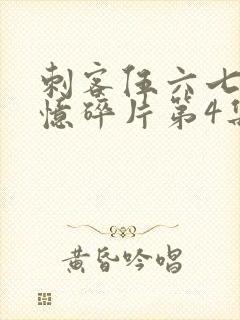 刺客伍六七
憶碎片第4集
黄昏吟唱